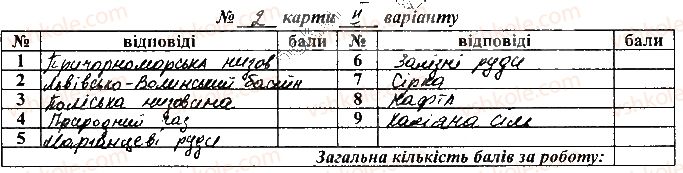 № 2 карти II варіанту
№ відповіді бали № відповіді бали
1 Причорноморська низов 6 Залізні руди
2 Львівсько-Волинський басейн 7 Сірка
3 Поліська низовина 8 Нафта
4 Природний газ 9 Калійна сіль
5 Марганцеві руди
Загальна кількість балів за роботу: